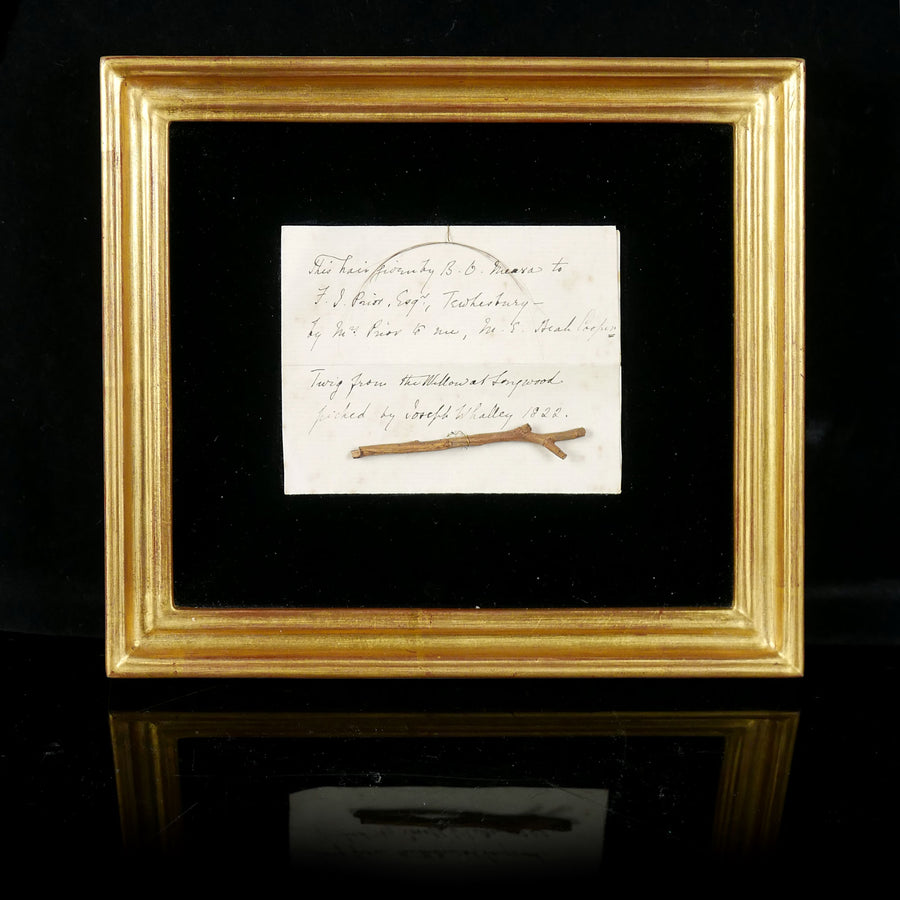 This hair given by B. O. Meara to
F. J. Prior, Esqr., Tewkesbury -
by Mrs Prior to me, M. E. Heale Cooper
Twig from the Willow at Longwood
picked by Joseph Whalley 1822.